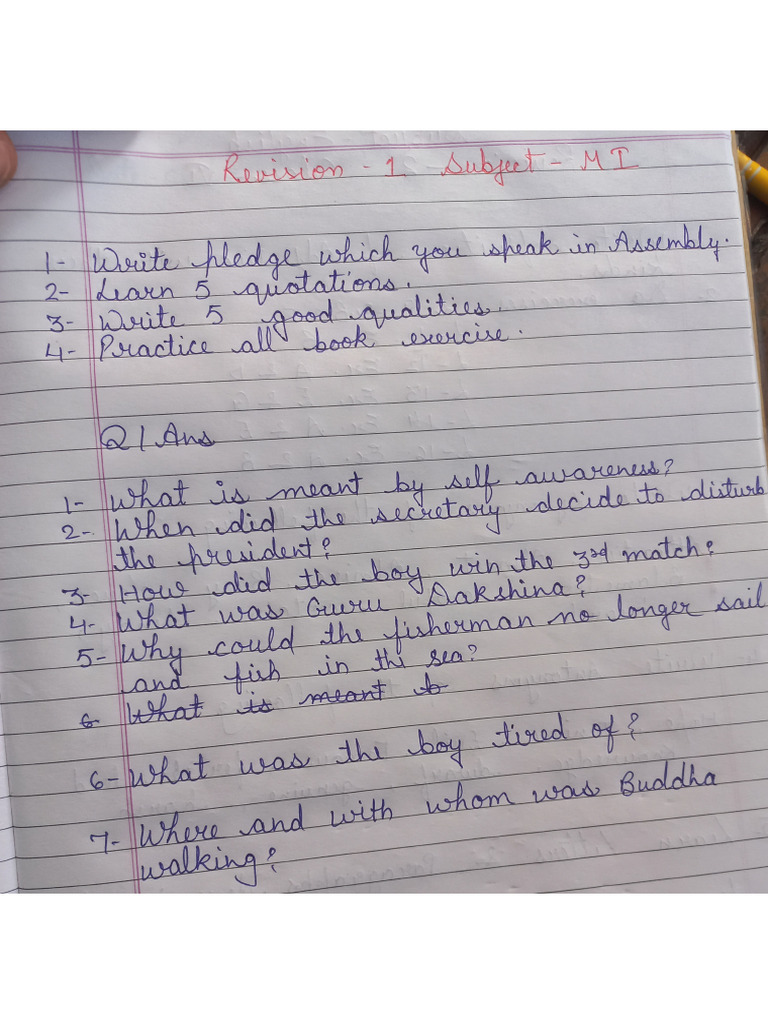 Revision - 1 Subject - M I
1- Write pledge which you speak in Assembly.
2- Learn 5 quotations.
3- Write 5 good qualities.
4- Practice all book exercise.
Q/Ans
1- What is meant by self awareness?
2- When did the secretary decide to disturb
the president?
3- How did the boy win the 3rd match?
4- What was Guru Dakshina?
5- Why could the fisherman no longer sail
and fish in the sea?
6 What is meant b
6- What was the boy tired of?
7- Where and with whom was Buddha
walking?